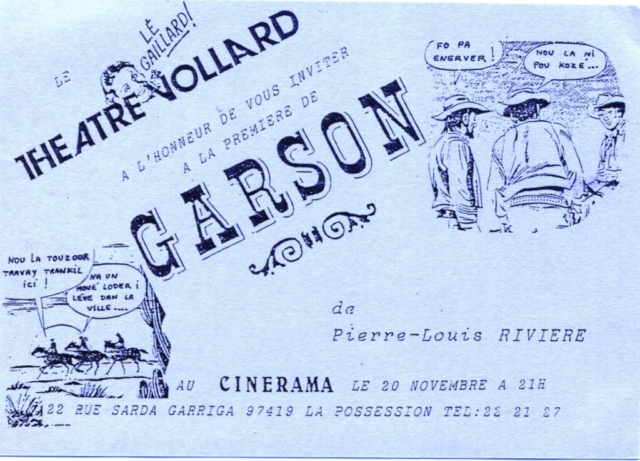 LÉ
GAILLARD!
LE
THEATRE VOLLARD
A L'HONNEUR DE VOUS INVITER
A LA PREMIERE DE
GARSON
FO PA
ENERVER !
NOU LA NI
POU KOZE...
NOU LA TOUZOUR
TRAVAY TRANKIL
ICI !
NA UN
MOVÉ LODER I
LÈVE DAN LA
VILLE....
de
Pierre-Louis RIVIERE
AU CINERAMA LE 20 NOVEMBRE A 21H
22 RUE SARDA GARRIGA 97419 LA POSSESSION TEL:22 21 27